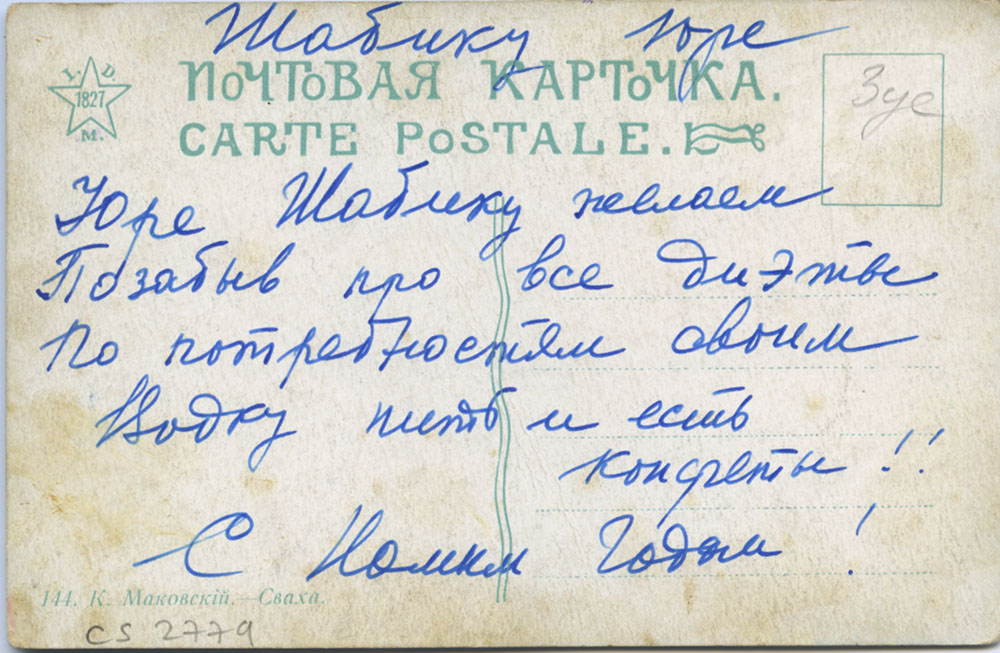 Шабику Юре
I. D.
1827
M.
ПОЧТОВАЯ КАРТОЧКА.
CARTE POSTALE.
Зуе
Юре Шабику желаем
Позабыв про все диэты
По потребностям своим
Водку пить и есть
конфеты!!
С Новым Годом!
144. К. Маковскій.—Сваха.
CS 2779